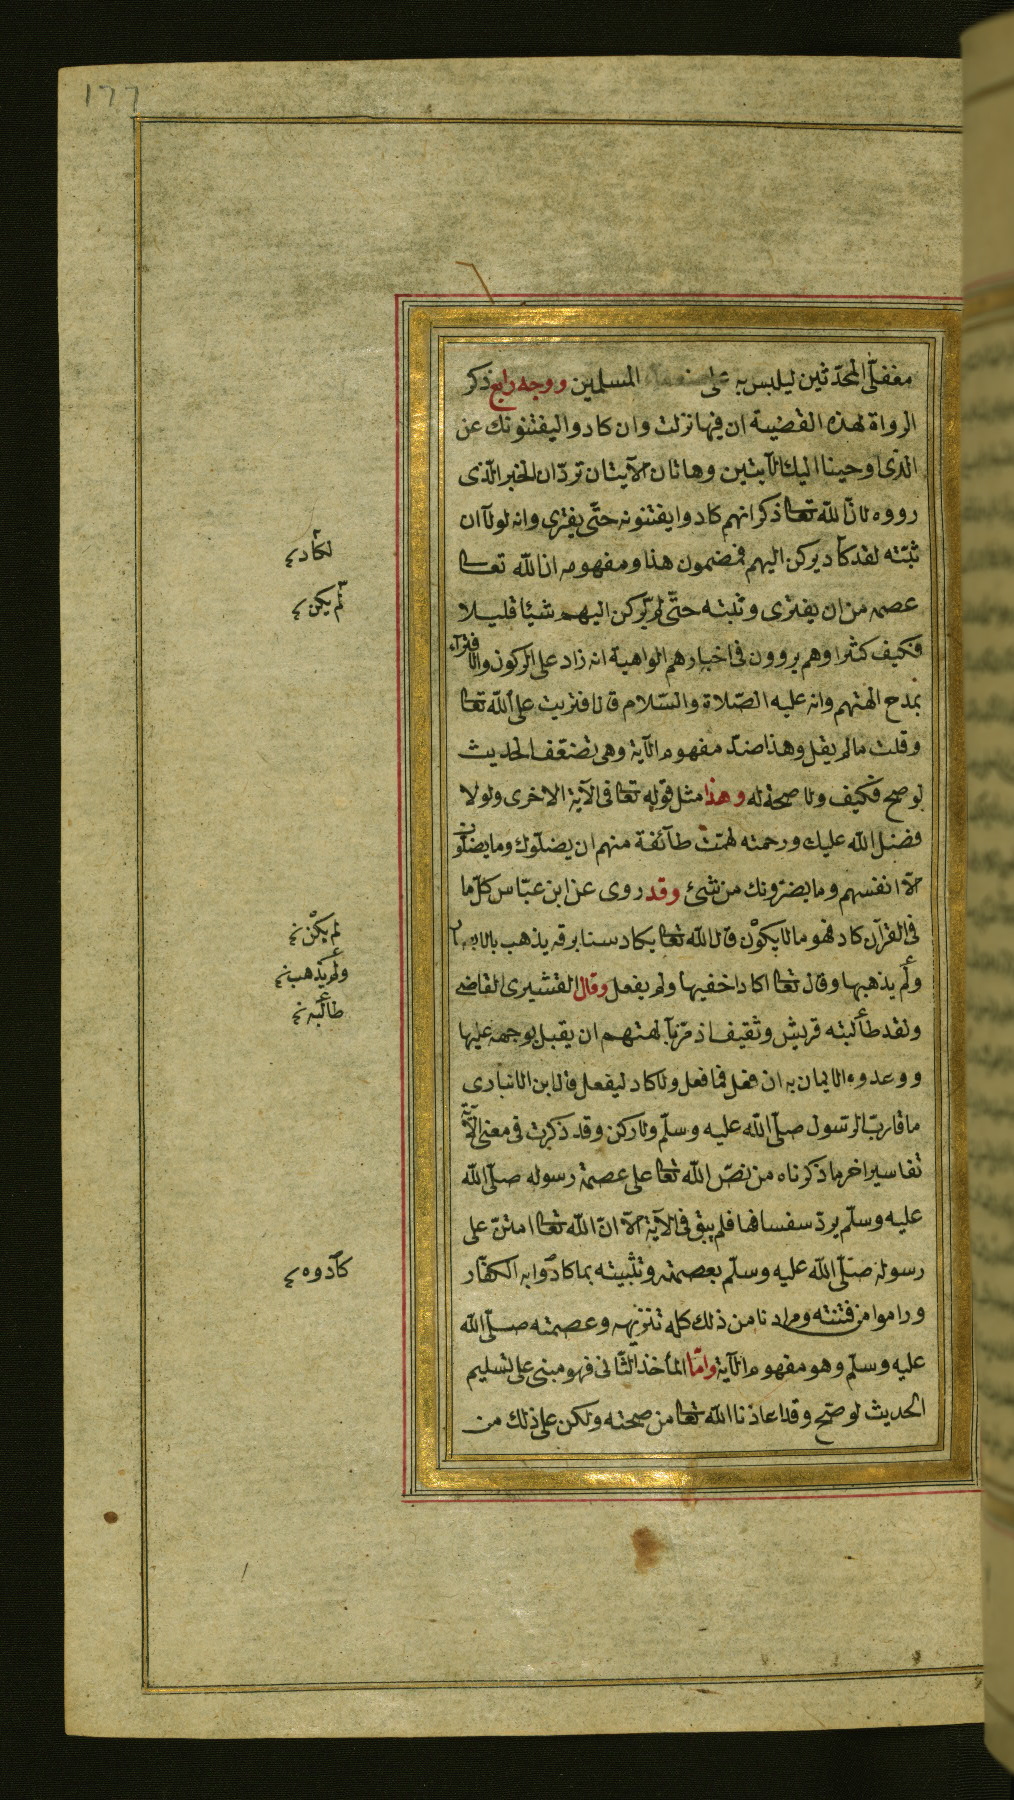 177
مغفلّى المحدّثين ليلبس به على ضعفاء المسلمين ووجه رابع ذكر
الرواة لهذه القضية ان فيها نزلت وان كادوا ليفتنونك عن
الذى اوحينا اليك الآيتين وهاتان الآيتان تردّان الخبر الّذى
رووه لانّ الله تعالى ذكر انهم كادوا يفتنونه حتّى يفترى وانه لولا ان
ثبّته لقد كاد يركن اليهم فمضمون هذا ومفهومه ان الله تعالى
عصمه من ان يفترى وثبته حتّى لم يركن اليهم شيئا قليلا
فكيف كثيرا وهم يروون فى اخبارهم الواهية انه زاد على الركون والافتراء
بمدح الهتهم وانه عليه الصّلاة والسّلام قال افتريت على الله تعالى
وقلت ما لم يقل وهذا ضدّ مفهوم الآية وهى تضعّف الحديث
لو صح فكيف ولا صحة له وهذا مثل قوله تعالى فى الآية الاخرى ولولا
فضل الله عليك ورحمته لهمّت طآئفة منهم ان يضلّوك وما يضلّون
الّا انفسهم وما يضرّونك من شئ وقد روى عن ابن عبّاس كلّ ما
فى القرآن كاد فهو ما لا يكوْن قال الله تعالى يكاد سنا برقه يذهب بالابصار
ولم يذهبها وقال تعالى اكاد اخفيها ولم يفعل وقال القشيرى القاضى
ولقد طالبته قريش وثقيف اذ مرّ بآلهتهم ان يقبل بوجهه عليها
ووعدوه الايمان به ان فعل فما فعل ولا كاد ليفعل قال ابن الانبارى
ما قارب الرّسول صلّى الله عليه وسلّم ولا ركن وقد ذكرت فى معنى الآية
تفاسير اخر ما ذكرناه من نصّ الله تعالى على عصمة رسوله صلّى الله
عليه وسلّم يردّ سفسافها فلم يبق فى الآية الّا انّ الله تعالى امتنّ على
رسوله صلّى الله عليه وسلّم بعصمته وتثبيته بما كادوا به الكفّار
وراموا من فتنته ومرادنا من ذلك كله تنزيهه وعصمته صلّى الله
عليه وسلّم وهو مفهوم الآية وامّا المأخذ الثّانى فهو مبنى على تسليم
الحديث لو صحّ وقد اعاذنا الله تعالى من صحّته ولكن على ذلك من
لكاد
لم يكن
لم يكنْ
ولم يذهب
طالبه
كادوه